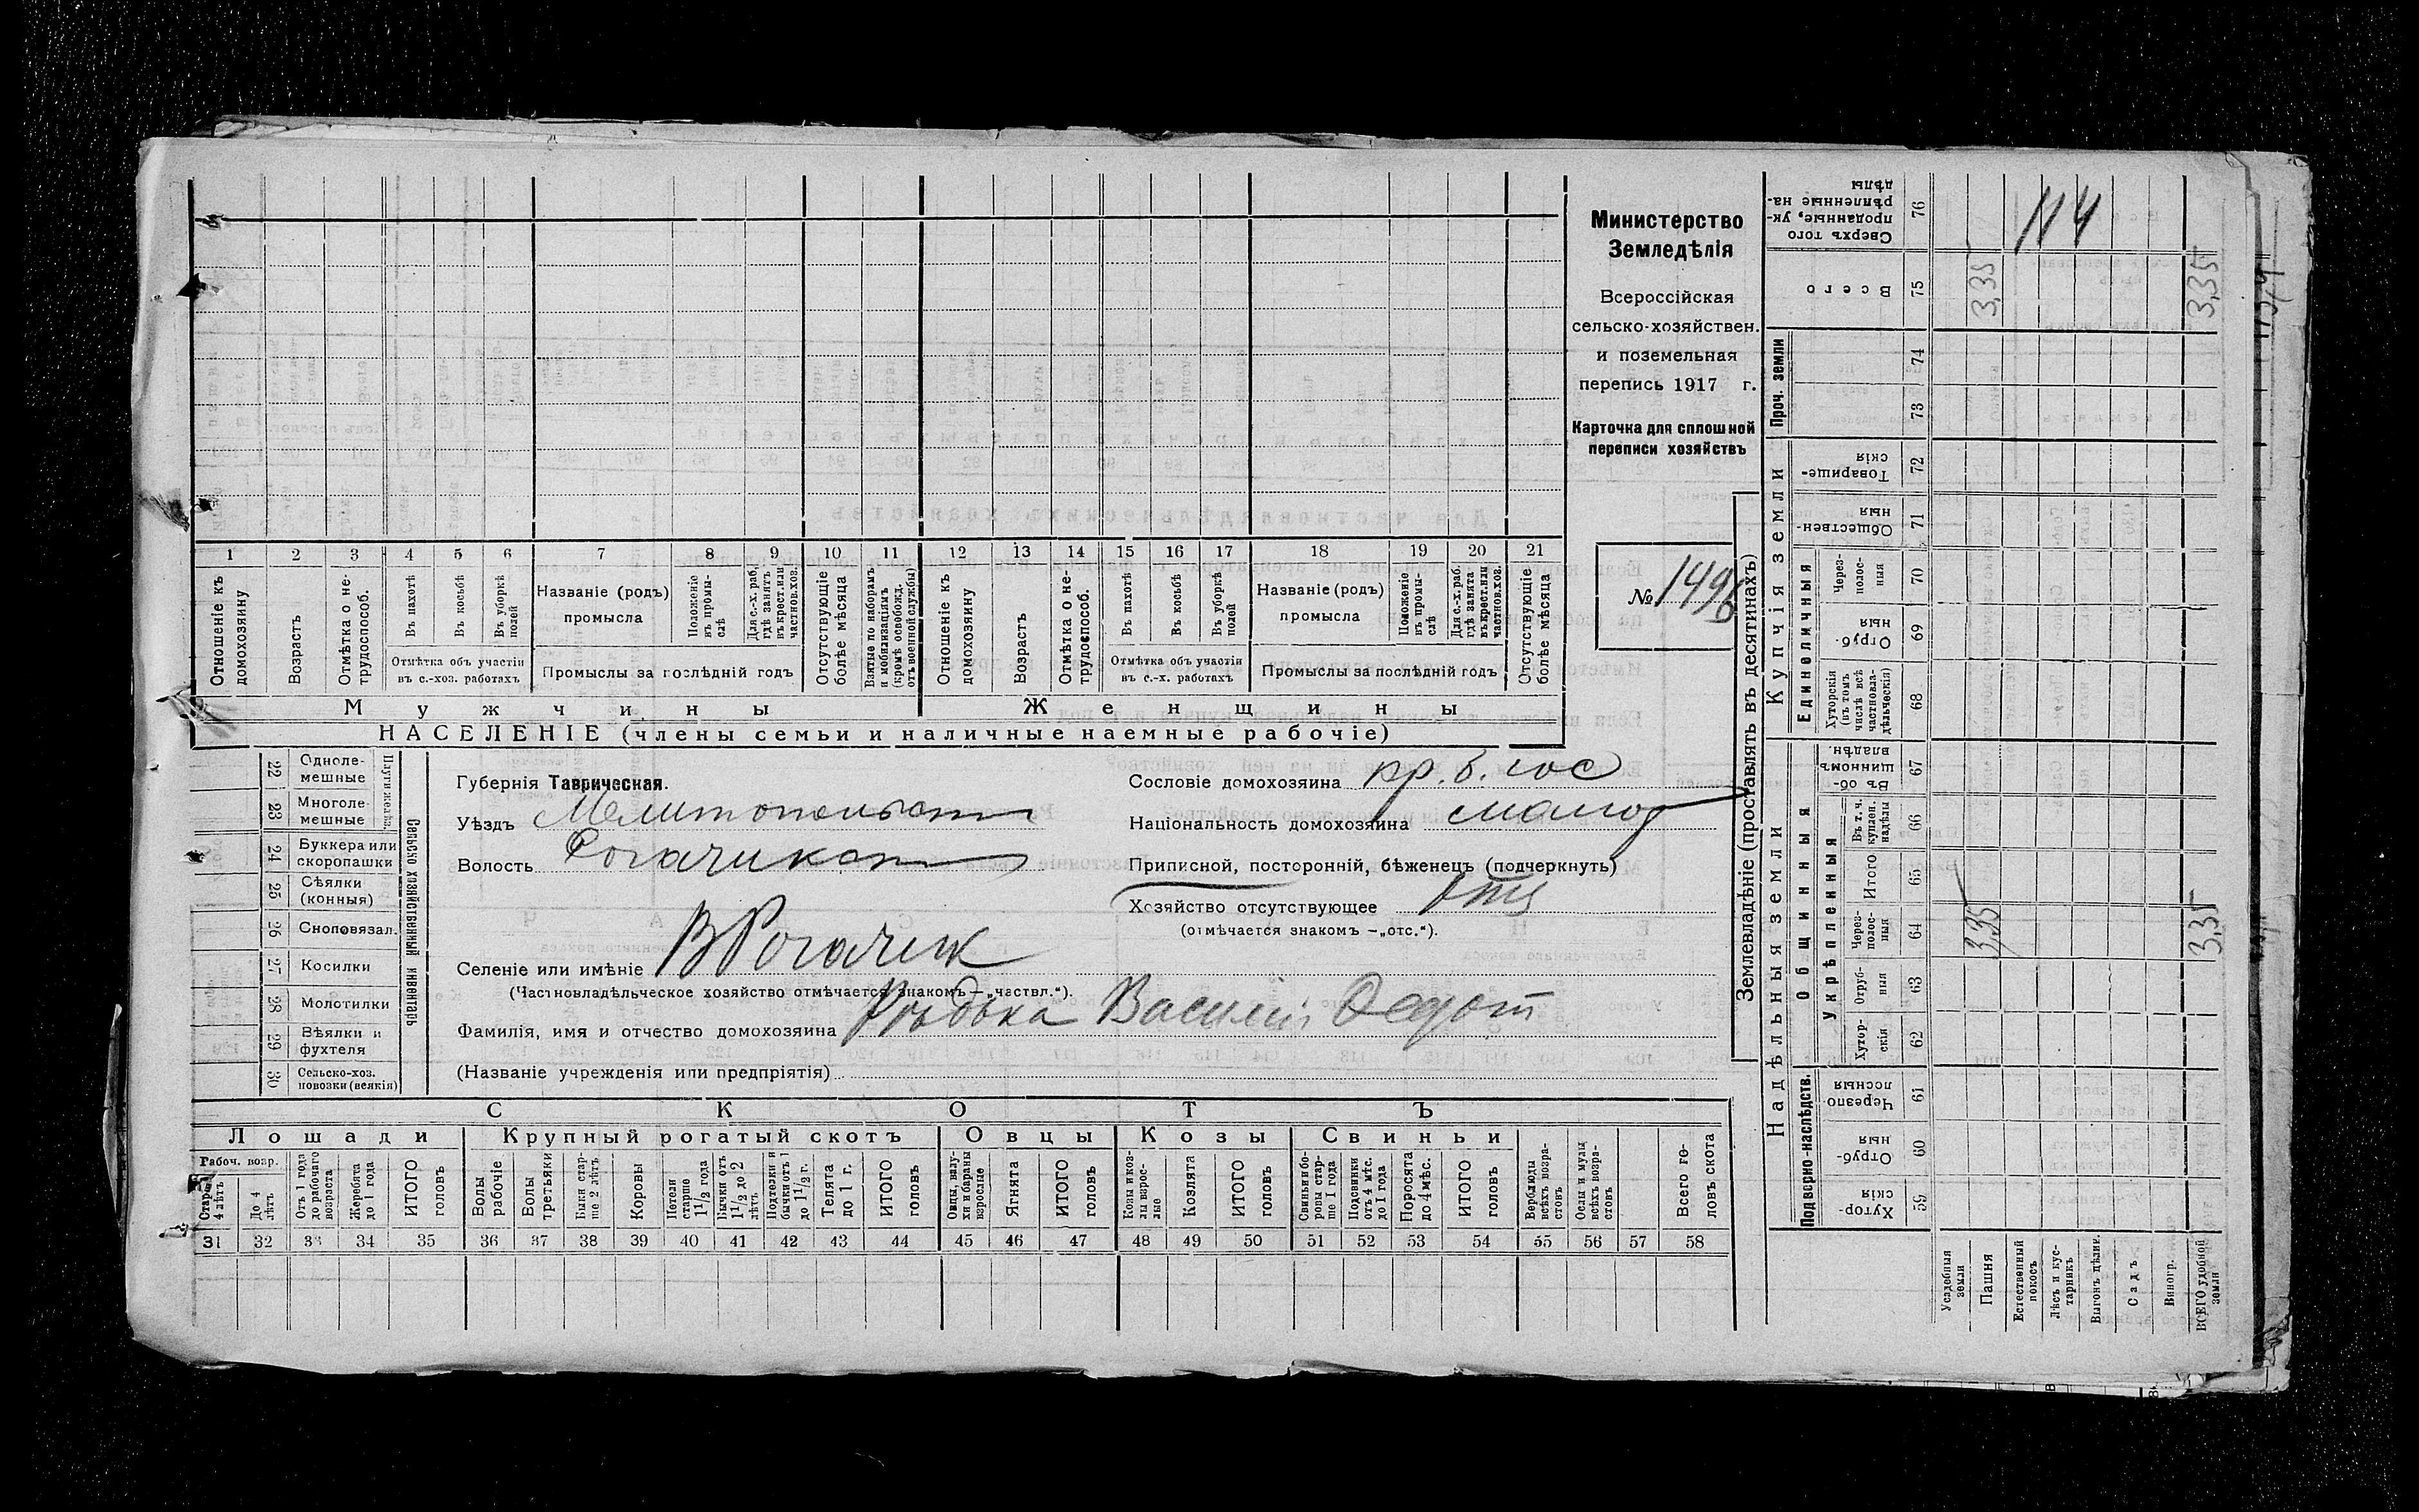 Министерство
Земледѣлія
Всероссійская
сельско-хозяйствен.
и поземельная
перепись 1917 г.
Карточка для сплошной
переписи хозяйствъ
№ 1496
114
1 2 3 4 5 6 7 8 9 10 11 12 13 14 15 16 17 18 19 20 21
Отношеніе къ домохозяину
Возрастъ
Отмѣтка о не-трудоспособ.
Въ пахотѣ
Въ косьбѣ
Въ уборкѣ полей
Отмѣтка объ участіи
въ с.-хоз. работахъ
Названіе (родъ)
промысла
Положеніе въ промы-слѣ
Для с.-х. раб. гдѣ занятъ въ крест. или частнов. хоз.
Промыслы за послѣдній годъ
Отсутствующіе болѣе мѣсяца
Взятые по наборамъ и мобилизаціямъ (кромѣ освобожд. отъ военной службы)
Отношеніе къ домохозяину
Возрастъ
Отмѣтка о не-трудоспособ.
Въ пахотѣ
Въ косьбѣ
Въ уборкѣ полей
Отмѣтка объ участіи
въ с.-х. работахъ
Названіе (родъ)
промысла
Положеніе въ промы-слѣ
Для с.-х. раб. гдѣ занята въ крест. или частнов. хоз.
Промыслы за послѣдній годъ
Отсутствующіе болѣе мѣсяца
Мужчины Женщины
НАСЕЛЕНІЕ (члены семьи и наличные наемные рабочіе)
22 Одноле-мешные
23 Многоле-мешные
Плуги желѣз.
24 Буккера или скоропашки
25 Сѣялки (конныя)
26 Сноповязал.
27 Косилки
28 Молотилки
29 Вѣялки и фухтеля
30 Сельско-хоз. повозки (всякія)
Сельско хозяйственный инвентарь
Губернія Таврическая.
Уѣздъ Мелитопольск
Волость Рогачикск
Сословіе домохозяина кр. б. гос
Національность домохозяина малор
Приписной, посторонній, бѣженецъ (подчеркнуть)
Хозяйство отсутствующее отс
(отмѣчается знакомъ —„отс.“).
Селеніе или имѣніе В Рогачик
(Частновладѣльческое хозяйство отмѣчается знакомъ—„частвл.“).
Фамилія, имя и отчество домохозяина Рѣдька Василій Федот
(Названіе учрежденія или предпріятія)
СКОТЪ
Лошади Крупный рогатый скотъ Овцы Козы Свиньи
Рабоч. возр.
Старше 4 лѣтъ
До 4 лѣтъ
Отъ 1 года до рабочаго возраста
Жеребята до 1 года
ИТОГО головъ
Волы рабочіе
Волы третьяки
Быки стар-ше 2 лѣтъ
Коровы
Нетели старше 1½ года
Бычки отъ 1½ до 2 лѣтъ
Подтелки и бычки отъ 1 до 1½ г.
Телята до 1 г.
ИТОГО головъ
Овцы, валу-хи и бараны взрослые
Ягнята
ИТОГО головъ
Козы и коз-лы взрос-лые
Козлята
ИТОГО головъ
Свиньи и бо-ровы стар-ше 1 года
Подсвинки отъ 4 мѣс. до 1 года
Поросята до 4 мѣс.
ИТОГО головъ
Верблюды всѣхъ возра-стовъ
Ослы и мулы всѣхъ возра-стовъ
Всего го-ловъ скота
31 32 33 34 35 36 37 38 39 40 41 42 43 44 45 46 47 48 49 50 51 52 53 54 55 56 57 58
Землевладѣніе (проставлять въ десятинахъ)
Купчія земли
Надѣльныя земли
Сверхъ того проданные, ук-рѣпленные на-дѣлы 76
Всего 75 3,35 3,35
Проч. земли 74 73
Товарище-скія 72
Обществен-ныя 71
Единоличныя
Через-полос-ныя 70
Отруб-ныя 69
Хуторскія (въ томъ числѣ всѣ частновла-дѣльческія) 68
Общинныя
Въ об-щинномъ владѣн. 67
Укрѣпленныя
Въ т. ч. куплен. надѣлы 66
Итого 65
Через-полос-ныя 64 3,35 3,35
Отруб-ныя 63
Хутор-скія 62
Подворно-наслѣдств.
Черезпо-лосныя 61
Отруб-ныя 60
Хутор-скія 59
Усадебныя земли
Пашня
Естественный покосъ
Лѣсъ и кус-тарникъ
Выгонъ дѣлян.
Садъ
Виногр.
ВСЕГО удобной земли